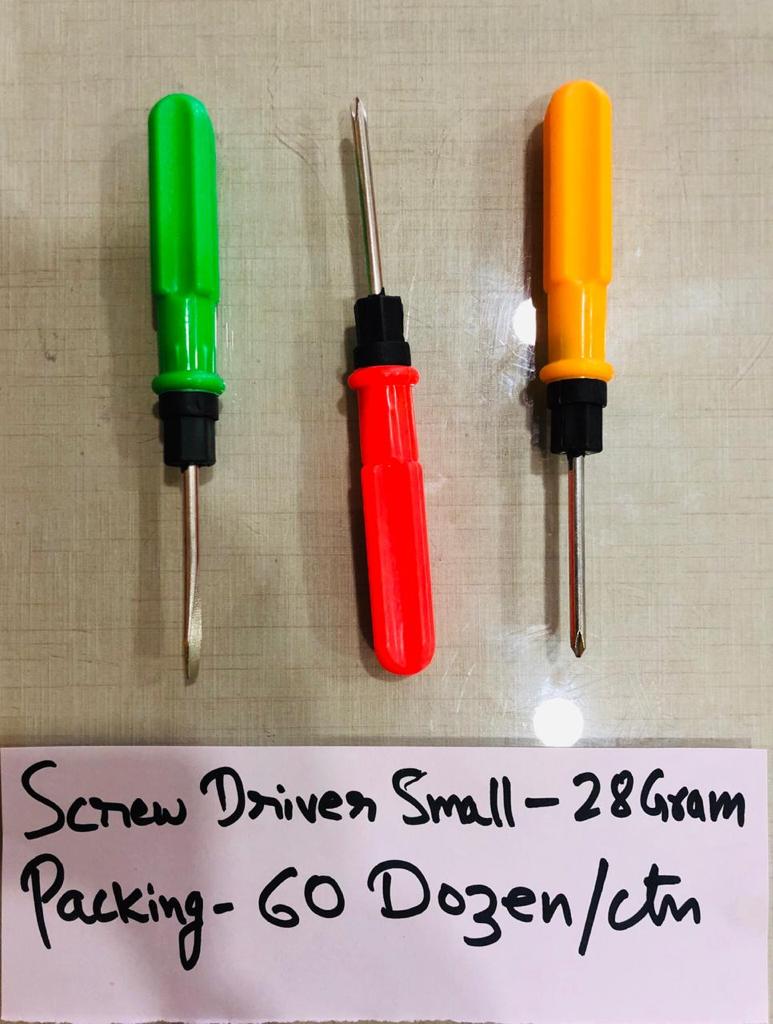 Screw Driver Small - 28 Gram
Packing - 60 Dozen/ctn